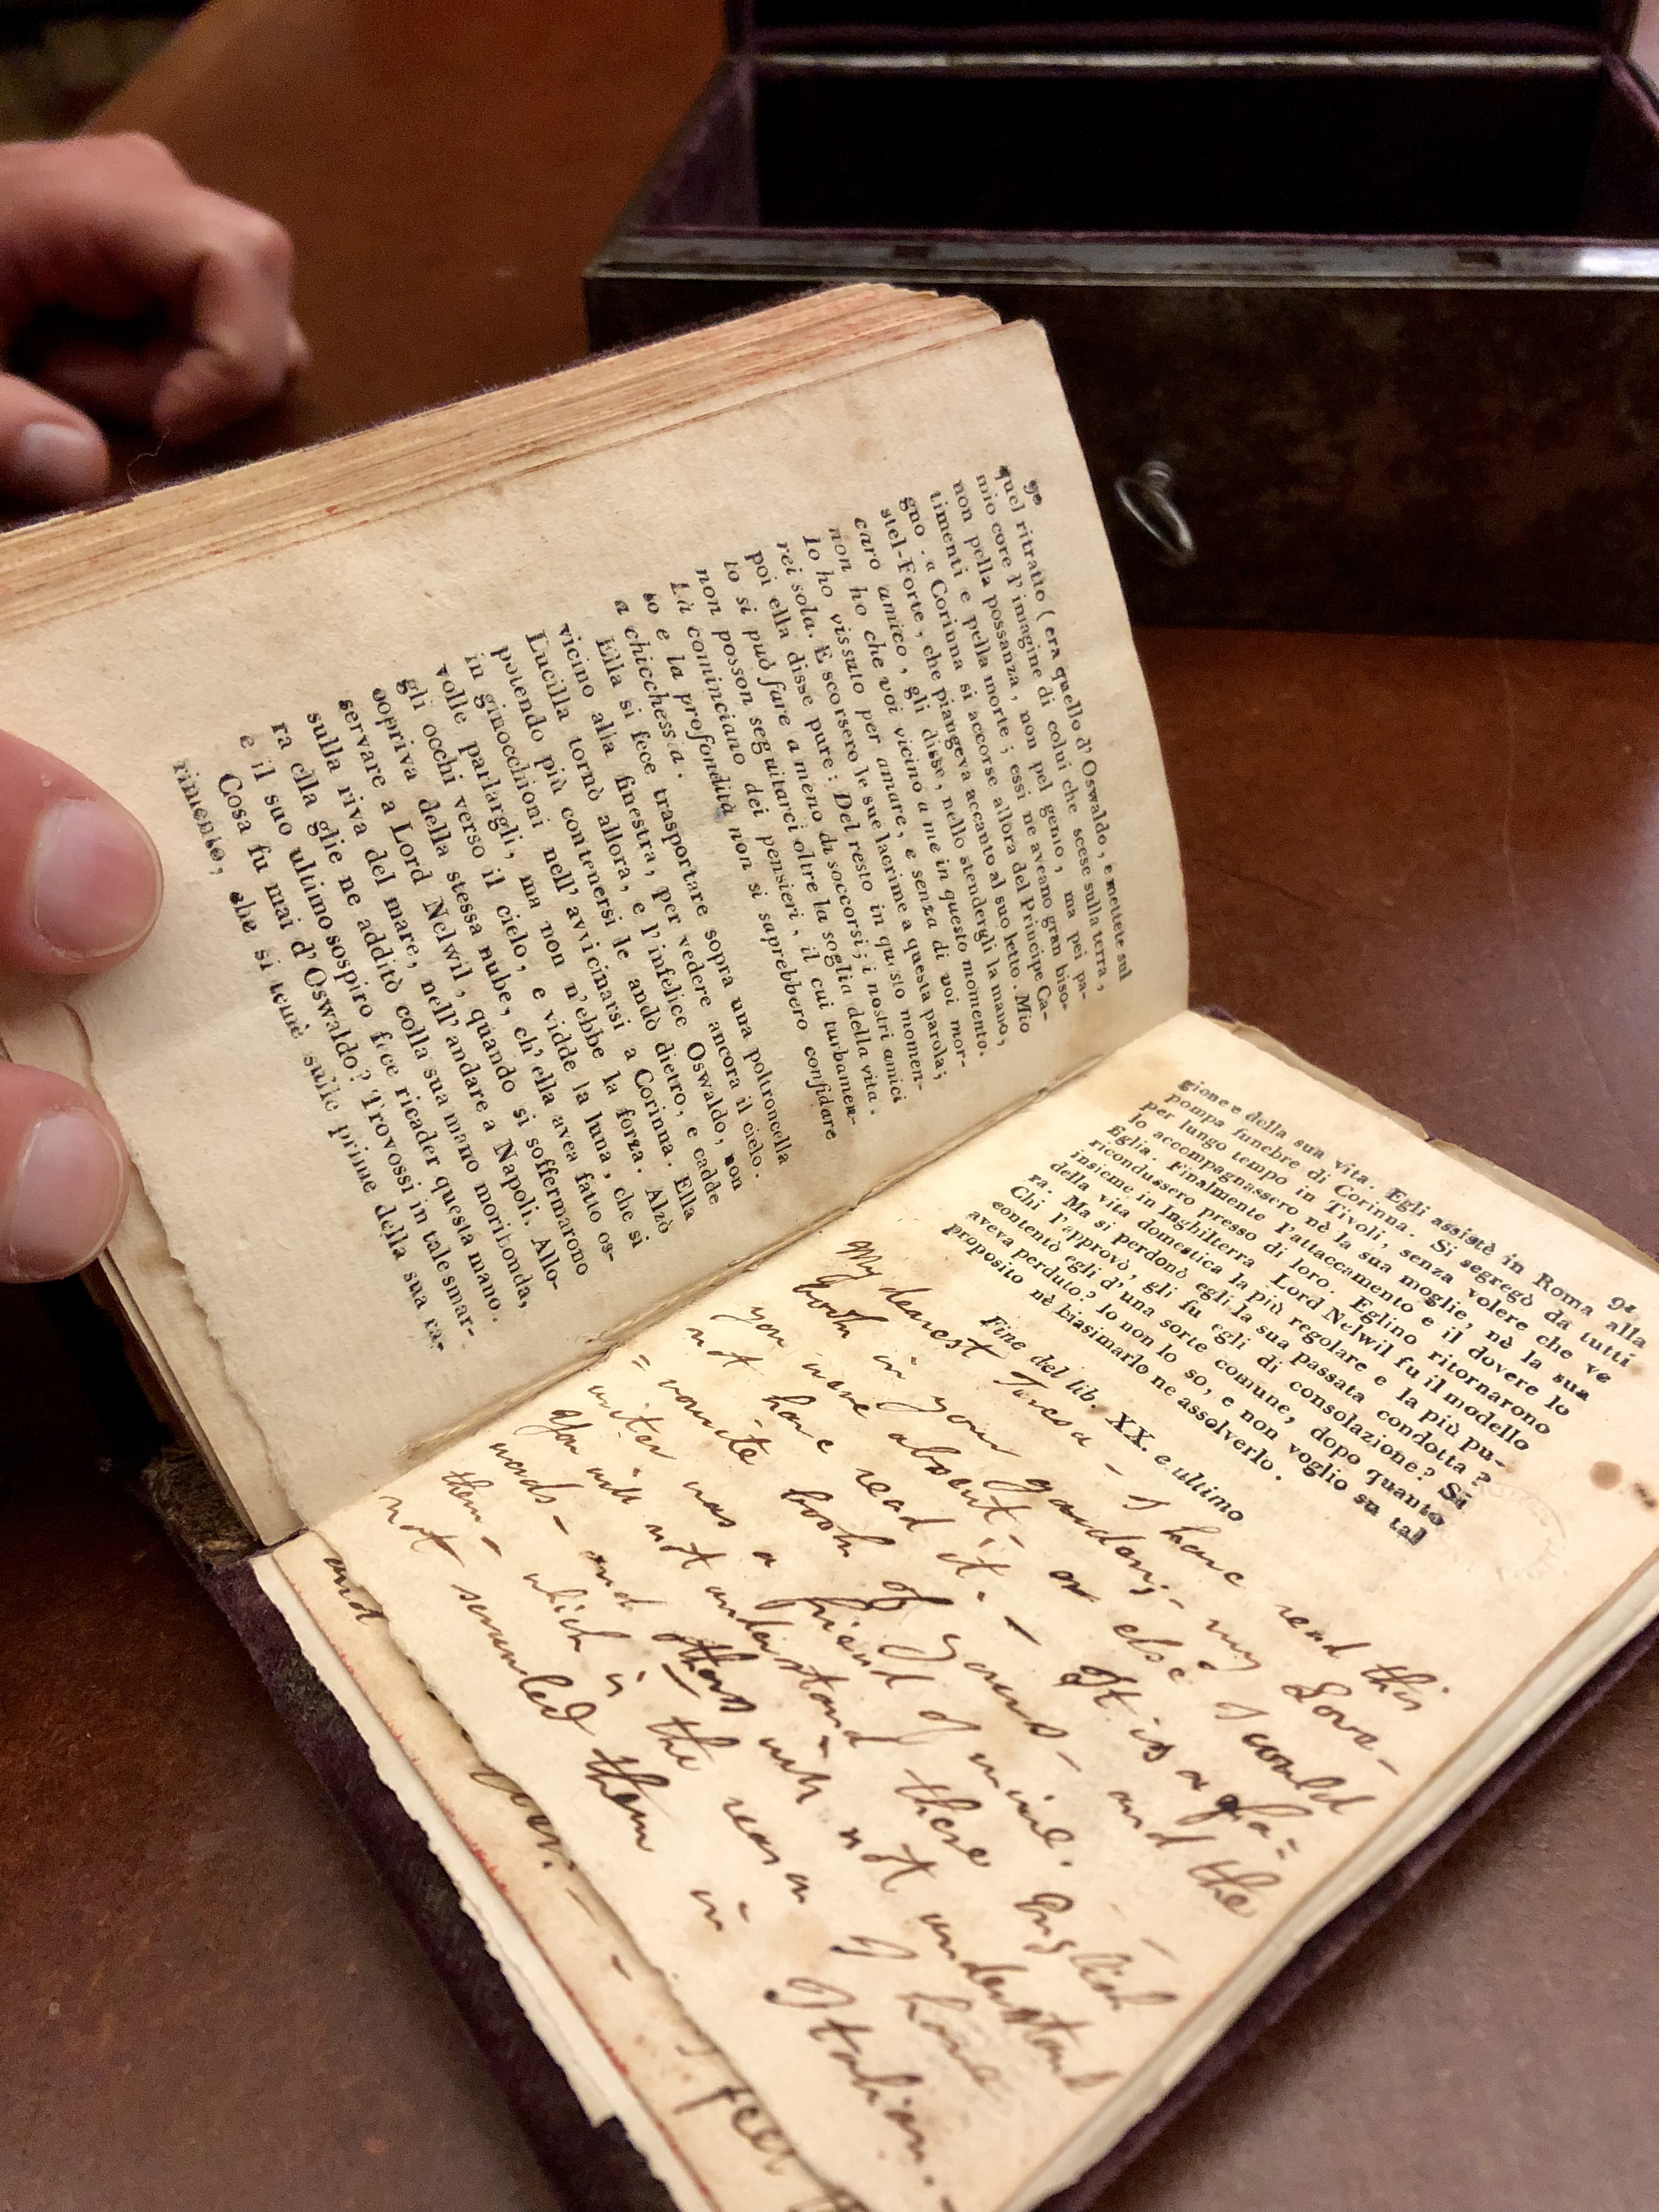 90
quel ritratto ( era quello d' Oswaldo , e mettete sul
mio core l' imagine di colui che scese sulla terra ,
non pella possanza , non pel genio , ma pei pa-
timenti e pella morte ; essi ne aveano gran biso-
gno . « Corinna si accorse allora del Principe Ca-
stel-Forte , che piangeva accanto al suo letto . Mio
caro amico , gli disse , nello stendergli la mano ,
non ho che voi vicino a me in questo momento .
Io ho vissuto per amare , e senza di voi mor-
rei sola . E scorsero le sue lacrime a questa parola ;
poi ella disse pure : Del resto in questo momen-
to si può fare a meno di soccorsi ; i nostri amici
non posson seguitarci oltre la soglia della vita .
Là cominciano dei pensieri , il cui turbamen-
to e la profondità non si saprebbero confidare
a chicchessia .
Ella si fece trasportare sopra una poltroncella
vicino alla finestra , per vedere ancora il cielo .
Lucilla tornò allora , e l' infelice Oswaldo , non
potendo più contenersi le andò dietro , e cadde
in ginocchioni nell' avvicinarsi a Corinna . Ella
volle parlargli , ma non n' ebbe la forza . Alzò
gli occhi verso il cielo , e vidde la luna , che si
copriva della stessa nube , ch' ella avea fatto os-
servare a Lord Nelwil , quando si soffermarono
sulla riva del mare , nell' andare a Napoli . Allo-
ra ella glie ne additò colla sua mano moribonda ,
e il suo ultimo sospiro fece ricader questa mano .
Cosa fu mai d' Oswaldo ? Trovossi in tale smar-
rimento , che si temè sulle prime della sua ra-
91
gione e della sua vita . Egli assistè in Roma alla
pompa funebre di Corinna . Si segregò da tutti
per lungo tempo in Tivoli , senza volere che ve
lo accompagnassero nè la sua moglie , nè la sua
Eglia . Finalmente l' attaccamento e il dovere lo
ricondussero presso di loro . Eglino ritornarono
insieme in Inghilterra . Lord Nelwil fu il modello
della vita domestica la più regolare e la più pu-
ra . Ma si perdonò egli la sua passata condotta ?
Chi l' approvò , gli fu egli di consolazione ? Si
contentò egli d' una sorte comune , dopo quanto
aveva perduto ? Io non lo so , e non voglio su tal
proposito nè biasimarlo ne assolverlo .
Fine del lib. XX. e ultimo
My dearest Teresa - I have read this
book in your garden ; - my Love -
you were absent - or else I could
not have read it . - It is a fa=
=vourite book of yours - and the
writer was a friend of mine .
You will not understand these English
words - and others will not understand
them - which is the reason I have
not scrawled them in Italian . -
and
your . -
feel